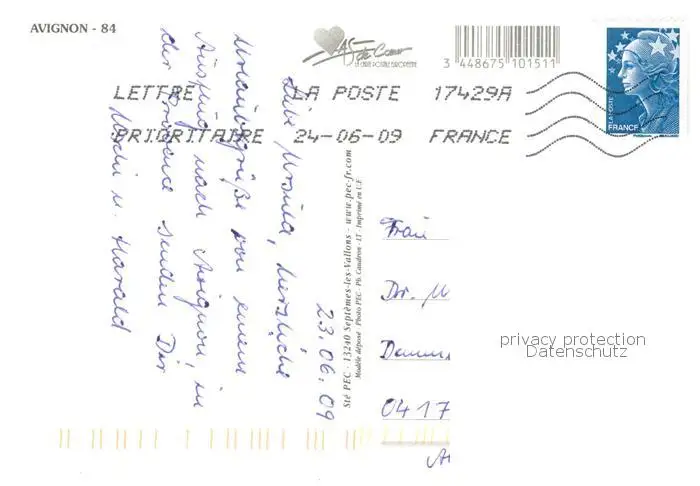 AVIGNON - 84
As de Cœur
LA CARTE POSTALE EUROPEENNE
3 448675 101511
LETTRE LA POSTE 17429A
PRIORITAIRE 24-06-09 FRANCE
LA POSTE
FRANCE
23.06.09
Liebe Ursula, herzliche
Urlaubsgrüße von einem
Ausflug nach Avignon, in
der Provence senden Dir
Uschi u. Harald
Sté PEC - 13240 Septèmes-les-Vallons - www.pec-fr.com
Modèle déposé - Photo PEC - Ph. Caudron - LT - Imprimé en U.E.
Frau
Dr. U
0417
privacy protection
Datenschutz